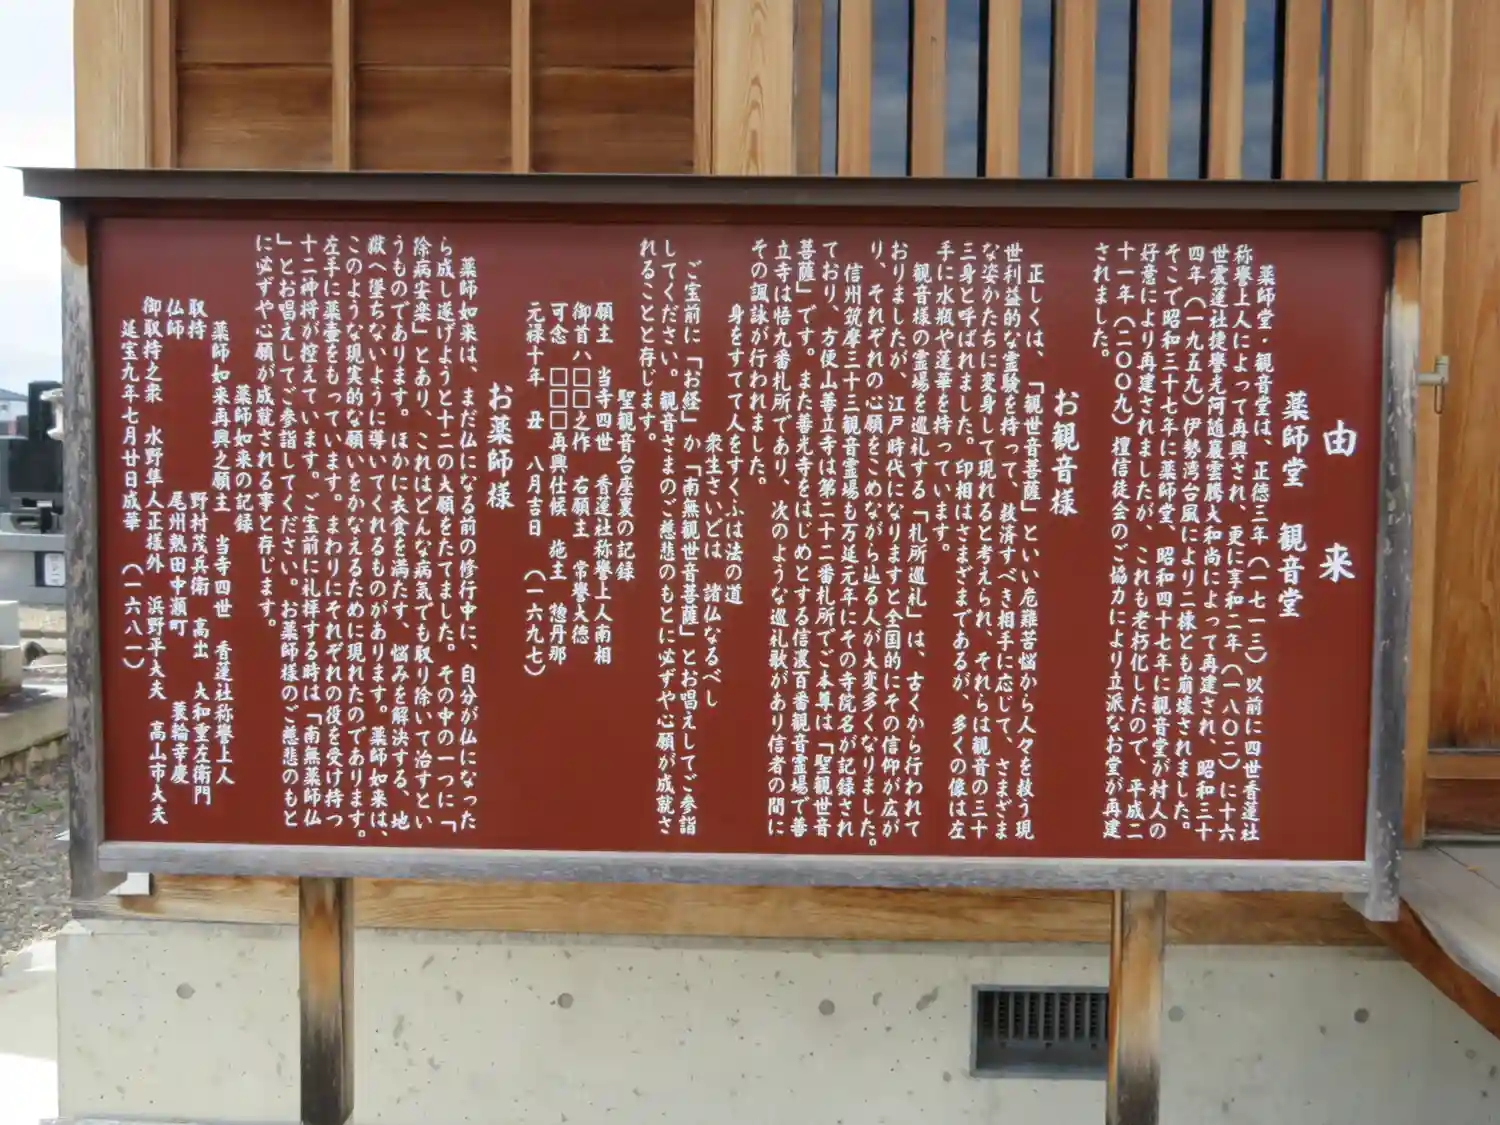 由来
薬師堂 観音堂
薬師堂・観音堂は、正徳三年(一七一三)以前に四世香蓮社
称譽上人によって再興され、更に享和二年(一八〇二)に十六
世震蓮社捷譽光阿随巖雲騰大和尚によって再建され、昭和三十
四年(一九五九)伊勢湾台風により二棟とも崩壊されました。
そこで昭和三十七年に薬師堂、昭和四十七年に観音堂が村人の
好意により再建されましたが、これも老朽化したので、平成二
十一年(二〇〇九)檀信徒会のご協力により立派なお堂が再建
されました。
お観音様
正しくは、「観世音菩薩」といい危難苦悩から人々を救う現
世利益的な霊験を持って、救済すべき相手に応じて、さまざま
な姿かたちに変身して現れると考えられ、それらは観音の三十
三身と呼ばれました。印相はさまざまであるが、多くの像は左
手に水瓶や蓮華を持っています。
観音様の霊場を巡礼する「札所巡礼」は、古くから行われて
おりましたが、江戸時代になりますと全国的にその信仰が広が
り、それぞれの心願をこめながら辿る人が大変多くなりました。
信州筑摩三十三観音霊場も万延元年にその寺院名が記録され
ており、方便山善立寺は第二十二番札所でご本尊は「聖観世音
菩薩」です。また善光寺をはじめとする信濃百番観音霊場で善
立寺は悟九番札所であり、次のような巡礼歌があり信者の間に
その諷詠が行われました。
身をすてて人をすくふは法の道
衆生さいどは 諸仏なるべし
ご宝前に「お経」か「南無観世音菩薩」とお唱えしてご参詣
してください。観音さまのご慈悲のもとに必ずや心願が成就さ
れることと存じます。
聖観音台座裏の記録
願主 当寺四世 香蓮社称譽上人南相
御首八□□之作 右願主 常譽大德
可念 □□□再興仕候 施主 惣丹那
元禄十年 丑 八月吉日 (一六九七)
お薬師様
薬師如来は、まだ仏になる前の修行中に、自分が仏になった
ら成し遂げようと十二の大願をたてました。その中の一つに「
除病安楽」とあり、これはどんな病気でも取り除いて治すとい
うものであります。ほかに衣食を満たす、悩みを解決する、地
獄へ墜ちないように導いてくれるものがあります。薬師如来は、
このような現実的な願いをかなえるために現れたのであります。
左手に薬壷をもっています。まわりにそれぞれの役を受け持つ
十二神将が控えています。ご宝前に礼拝する時は「南無薬師仏
」とお唱えしてご参詣してください。お薬師様のご慈悲のもと
に必ずや心願が成就される事と存じます。
薬師如来の記録
薬師如来再興之願主 当寺四世 香蓮社称譽上人
取持 野村茂兵衛 高出 大和重左衛門
仏師 尾州熱田中瀬町 蓑輪幸慶
御取持之衆 水野隼人正様外 浜野平大夫 高山市大夫
延宝九年七月廿日成華 (一六八一)